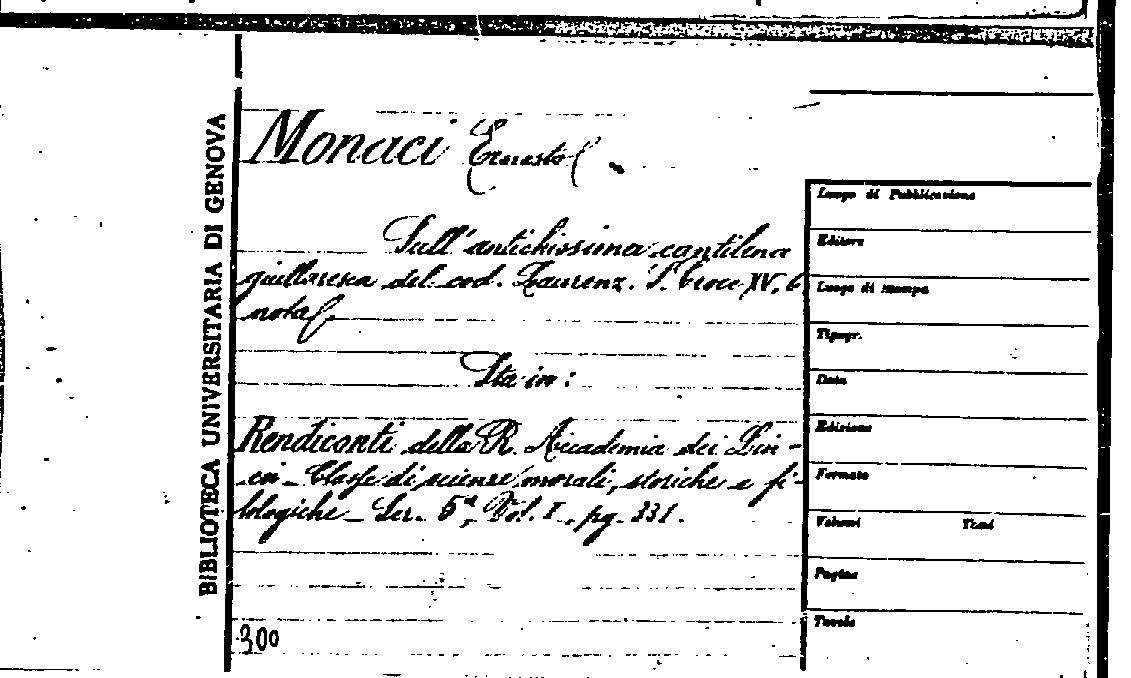 BIBLIOTECA UNIVERSITARIA DI GENOVA
Monaci Ernesto
Sull'antichissima cantilena
giullaresca del cod. Laurenz. S. Croce XV, 6
nota
Sta in:
Rendiconti della R. Accademia dei Lin-
cei - Classe di scienze morali, storiche e fi-
lologiche - Ser. 5ª, Vol. I - pg. 331.
300
Luogo di Pubblicazione
Editore
Luogo di stampa
Tipogr.
Data
Edizione
Formato
Volumi Tomi
Pagine
Tavole